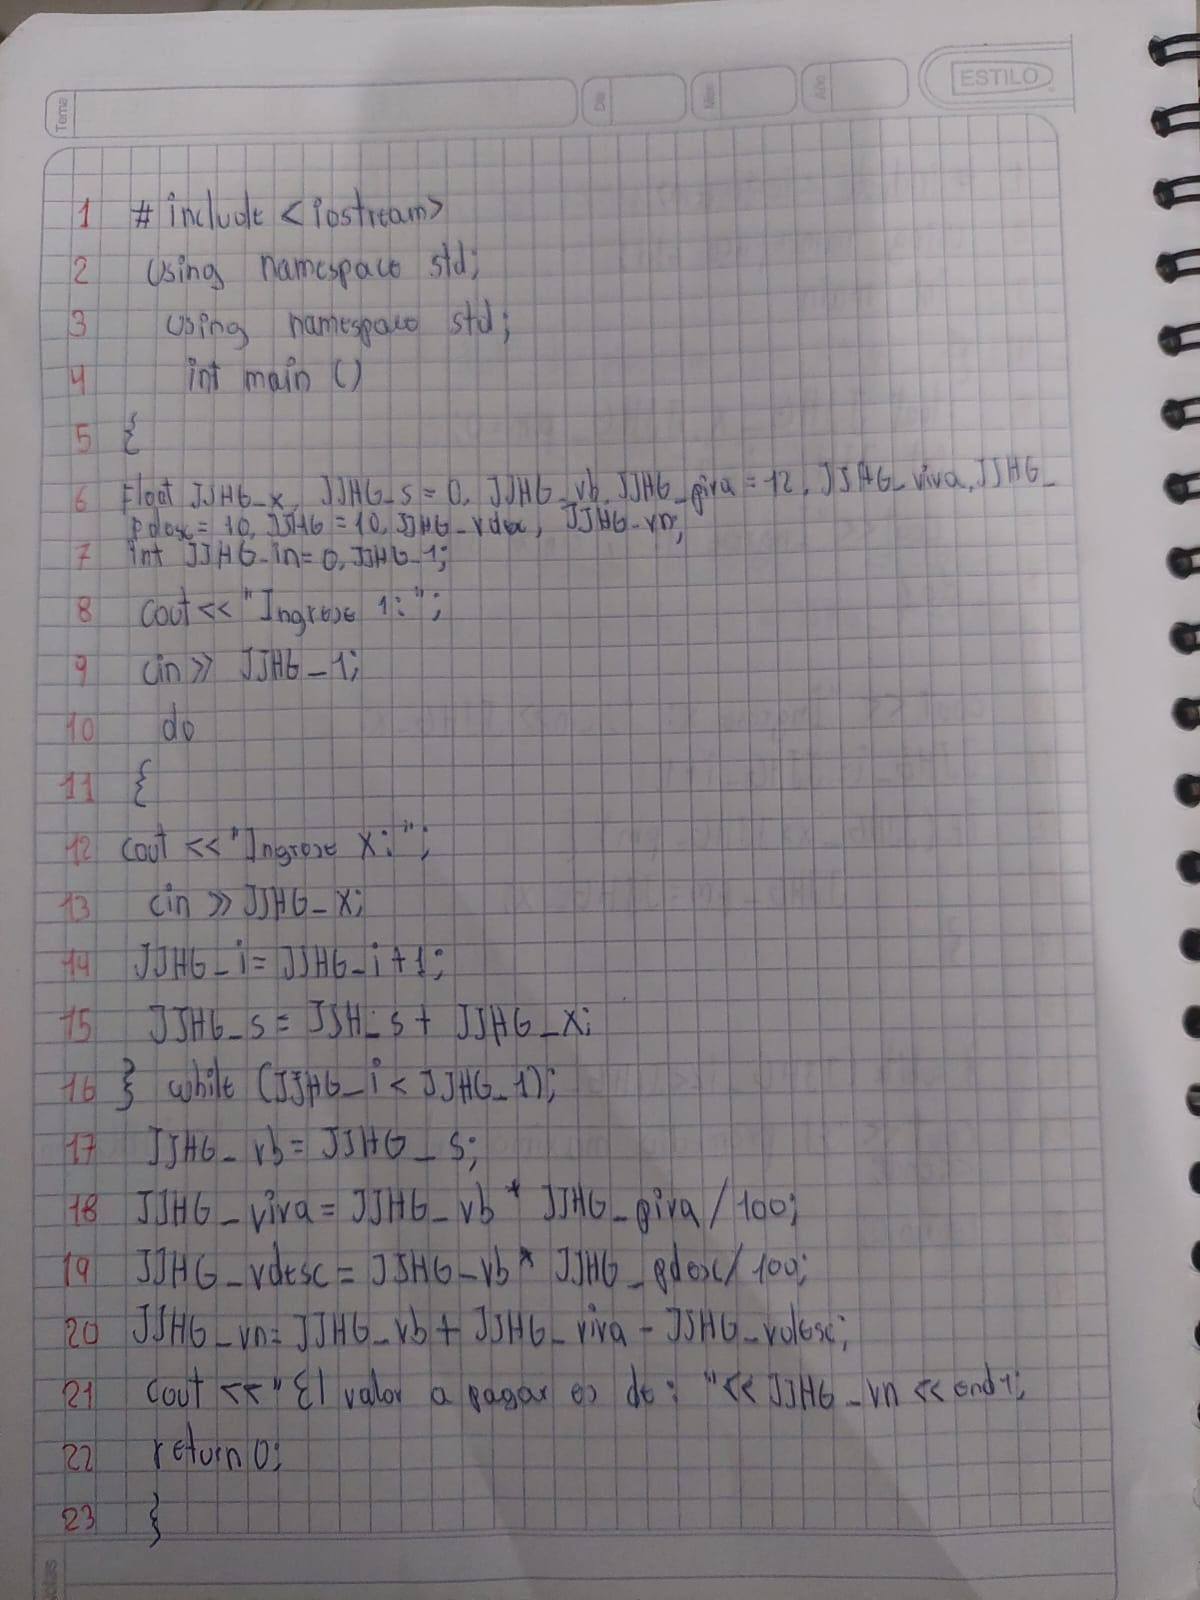 Tema
Día
Mes
Año
ESTILO
1 # include <iostream>
2 using namespace std;
3 using namespace std;
4 int main ()
5 {
6 Float JJHG_x, JJHG_s=0, JJHG_vb, JJHG_piva=12, JJHG_viva, JJHG_
pdesc=10, JJHG=10, JJHG_vdesc, JJHG_vn;
7 int JJHG_in=0, JJHG_1;
8 cout<< "Ingrese 1: ";
9 cin>> JJHG_1;
10 do
11 {
12 cout << "Ingrese x: ";
13 cin >> JJHG_x;
14 JJHG_i= JJHG_i+1;
15 JJHG_s= JJH_s+ JJHG_x;
16 } while (JJHG_i< JJHG_1);
17 JJHG_vb= JJHG_s;
18 JJHG_viva= JJHG_vb* JJHG_piva/100;
19 JJHG_vdesc= JJHG_vb* JJHG_pdesc/100;
20 JJHG_vn= JJHG_vb+ JJHG_viva- JJHG_vdesc;
21 cout <<"El valor a pagar es de: "<< JJHG_vn <<end1;
22 return 0;
23 }
Notas